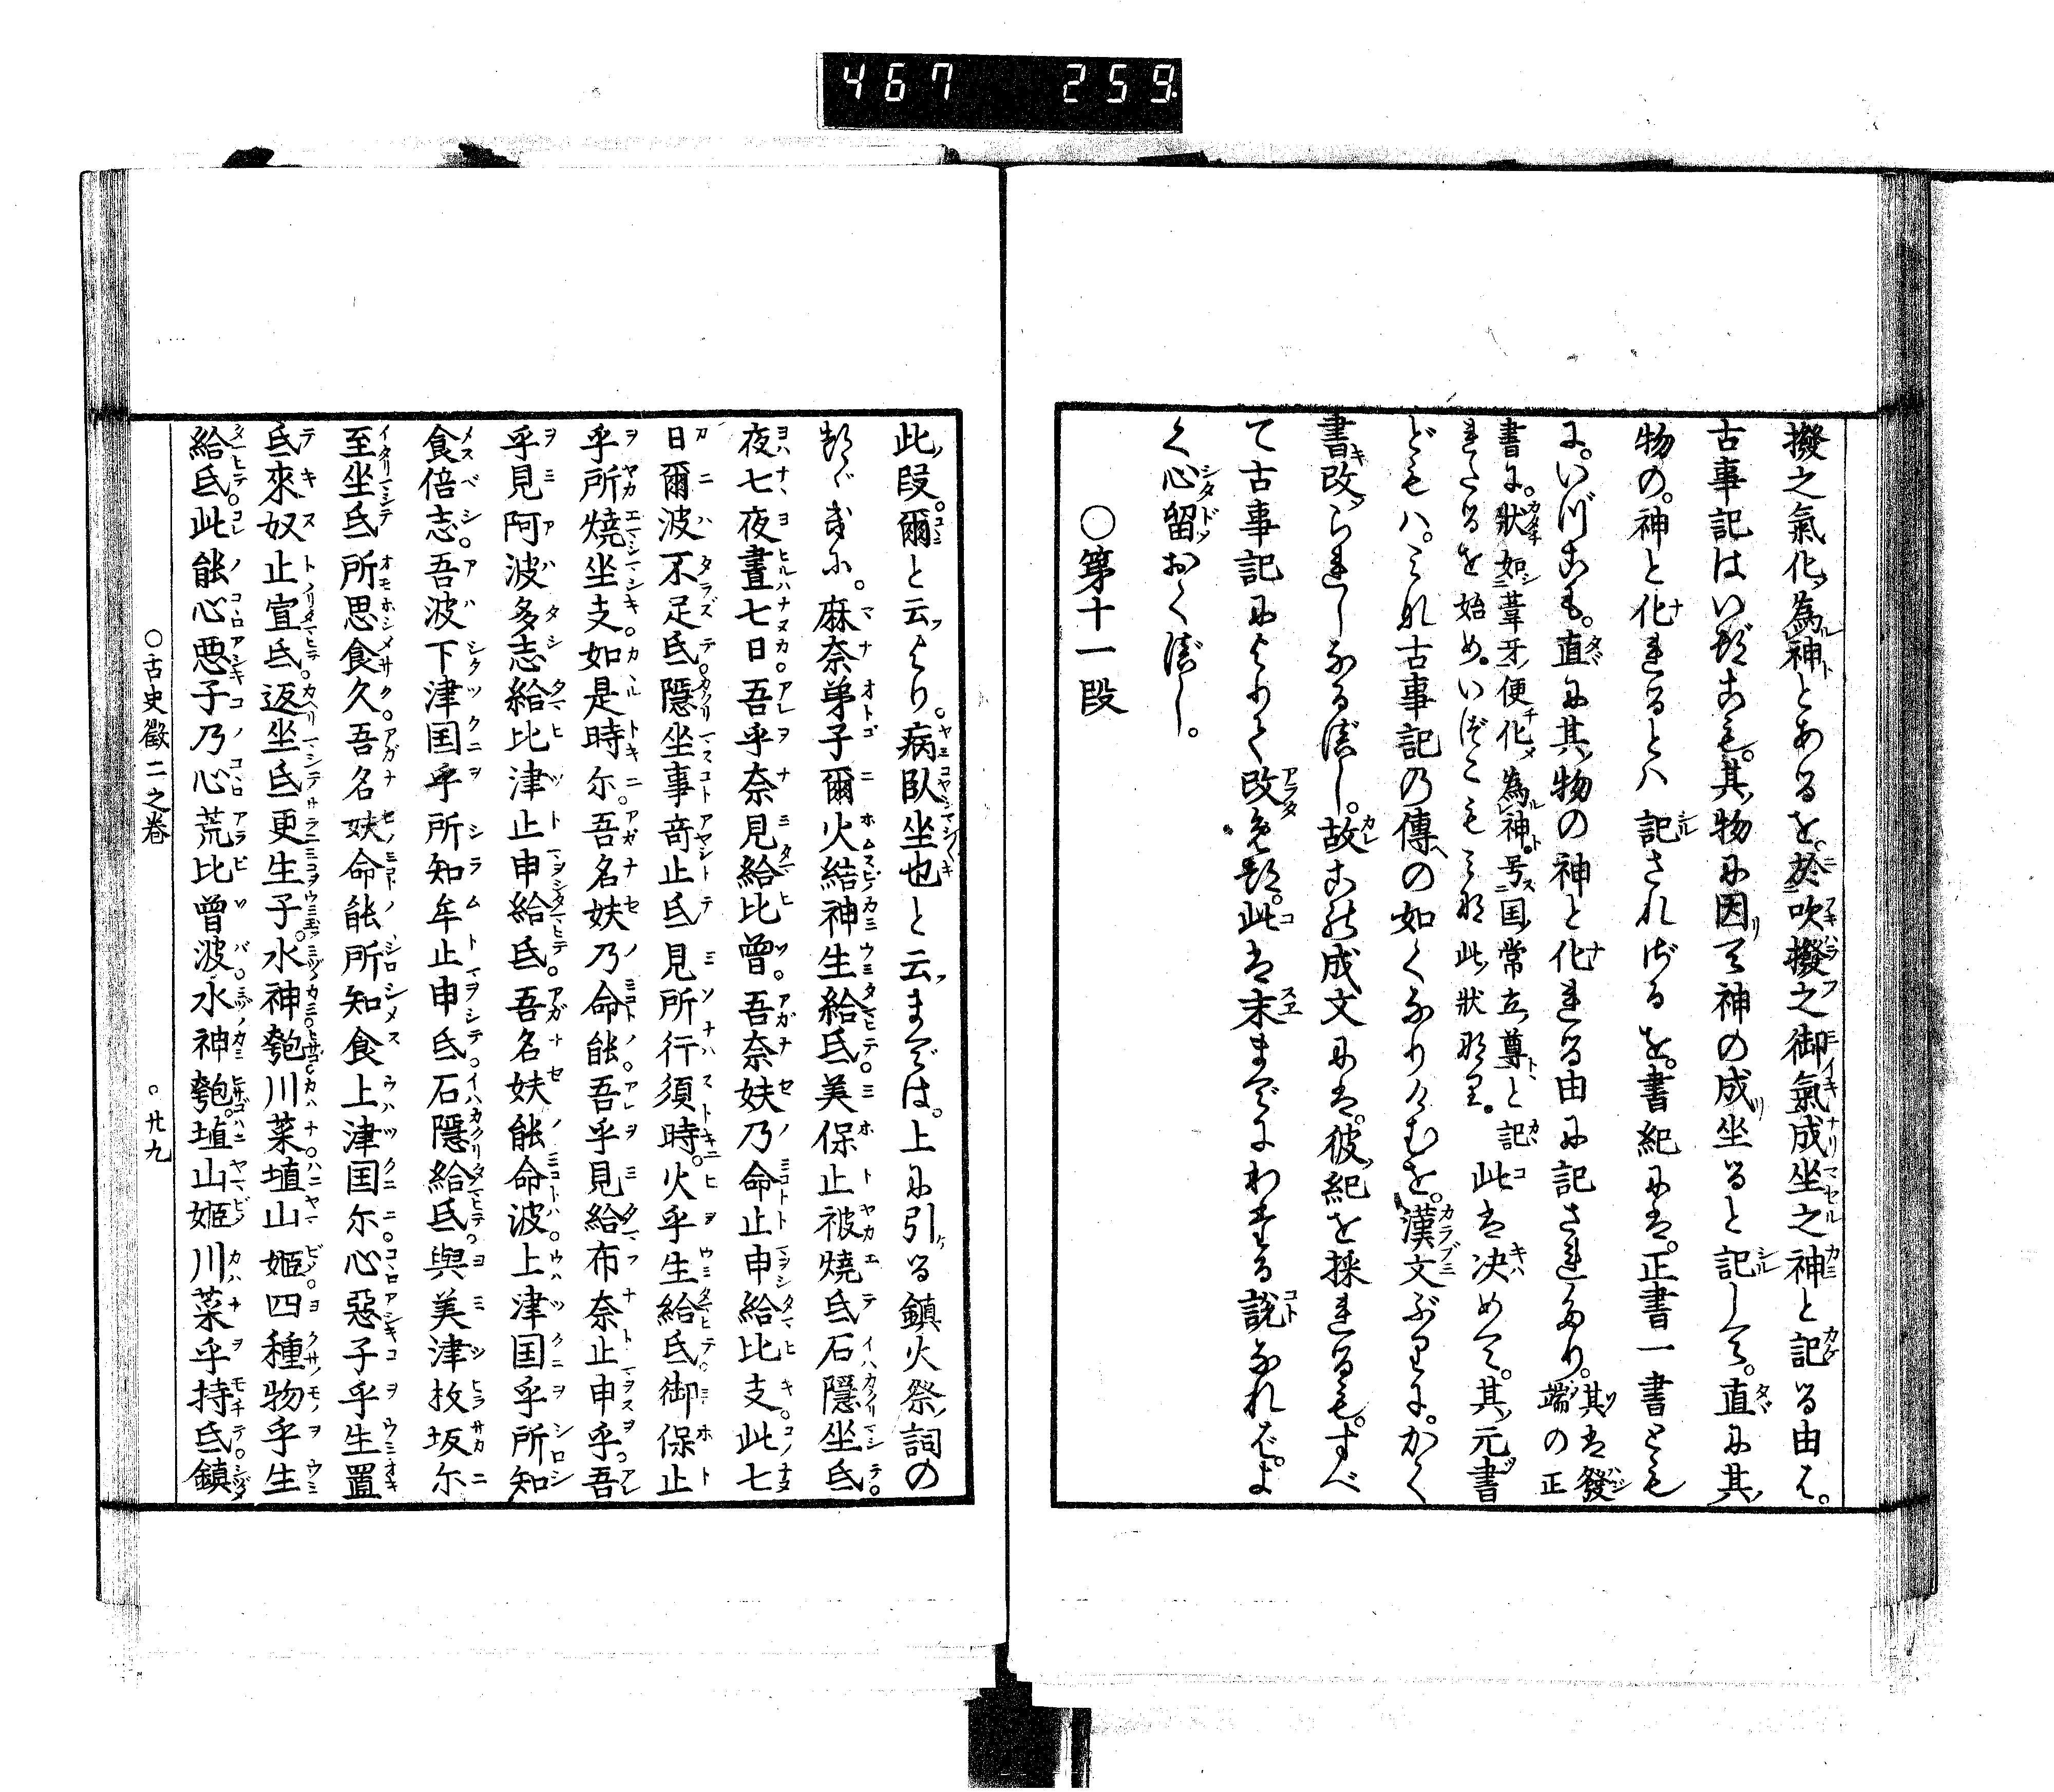 467 259.
撥之氣化為神とあるを。於吹撥之御氣成坐之神と記る由は。
古事記はいづこも。其物に因て神の成坐ると記して。直に其
物の。神と化れるとハ記されざるを。書紀には。正書一書とも
に。いづこも。直に其物の神と化れる由に記されたり。其は發端の正
書に。狀如葦牙便化為神。号国常立尊と記
れたるを始め。いづこもみな此狀なり。此は决めて。其元書
どもハ。みな古事記の傳の如くなりけむを。漢文ぶりに。かく
書改られしなるべし。故この成文には。彼紀を採れるも。すべ
て古事記によりて改めつ。此は末までにわたる說なれば。よ
く心留おくべし。
○第十一段
此段。爾と云より。病臥坐也と云までは。上に引る鎮火祭詞の
つぎに。麻奈弟子爾火結神生給氐。美保止被燒氐石隱坐氐。
夜七夜晝七日。吾乎奈見給比曾。吾奈妋乃命止申給比支。此七
日爾波不足氐。隱坐事奇止氐見所行須時。火乎生給氐。御保止
乎所燒坐支。如是時尓。吾名妋乃命能。吾乎見給布奈止申乎。吾
乎見阿波多志給比津止申給氐。吾名妋能命波。上津国乎所知
食倍志。吾波下津国乎所知牟止申氐。石隱給氐。與美津枚坂尓
至坐氐所思食久。吾名妋命能所知食上津国尓。心惡子乎生置
氐來奴止宣氐。返坐氐更生子。水神匏川菜埴山姬。四種物乎生
給氐。此能心悪子乃心荒比曾波。水神匏。埴山姬川菜乎持氐。鎮
○古史徵二之卷
○廿九